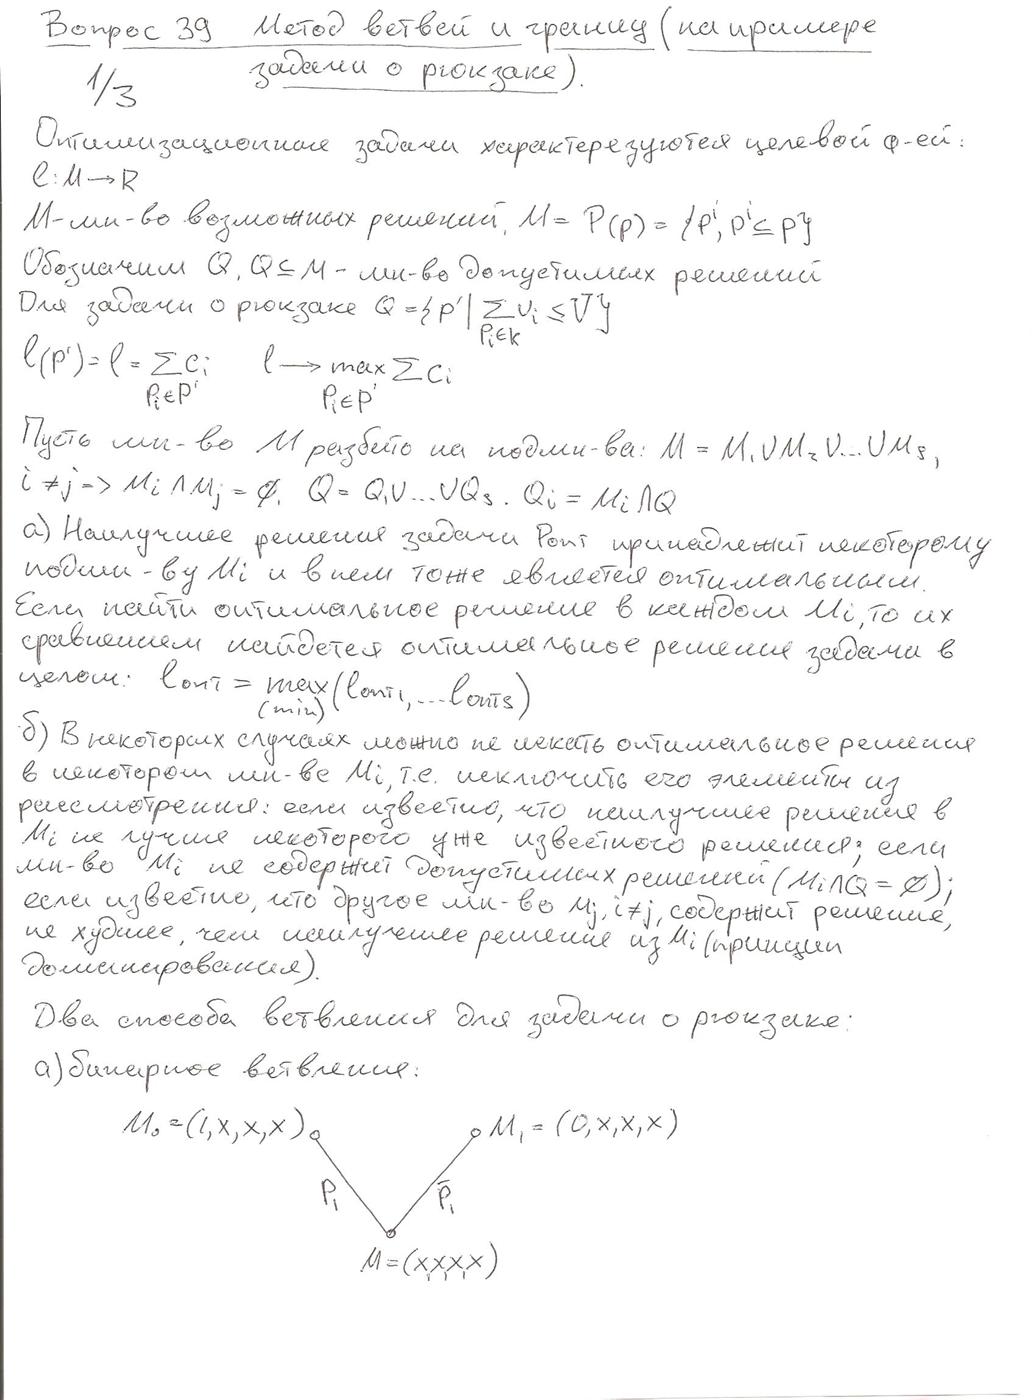 Вопрос 39 Метод ветвей и границ (на примере
задачи о рюкзаке).
1/3
Оптимизационные задачи характерезуются целевой ф-ей:
l: M → R
M - мн-во возможных решений, M = P(p) = {p', p' ⊆ p}
Обозначим Q, Q ⊆ M - мн-во допустимых решений
Для задачи о рюкзаке Q = {p' | ∑ vi ≤ V}
pi∈k
l(p') = l = ∑ ci l → max ∑ ci
pi∈p' pi∈p'
Пусть мн-во M разбито на подмн-ва: M = M₁ U M₂ U ... U Ms,
i ≠ j => Mi ∩ Mj = ∅. Q = Q₁ U ... U Qs. Qi = Mi ∩ Q
а) Наилучшее решение задачи Pопт принадлежит некоторому
подмн-ву Mi и в нем тоже является оптимальным.
Если найти оптимальное решение в каждом Mi, то их
сравнением найдется оптимальное решение задачи в
целом: lопт = max (lопт1, ... lоптs)
(min)
б) В некоторых случаях можно не искать оптимальное решение
в некотором мн-ве Mi, т.е. исключить его элементы из
рассмотрения: если известно, что наилучшее решение в
Mi не лучше некоторого уже известного решения; если
мн-во Mi не содержит допустимых решений (Mi ∩ Q = ∅);
если известно, что другое мн-во Mj, i ≠ j, содержит решение,
не худшее, чем наилучшее решение из Mi (принцип
доминирования).
Два способа ветвления для задачи о рюкзаке:
а) бинарное ветвление:
M₀ = (1, x, x, x) M₁ = (0, x, x, x)
P₁ P̄₁
M = (x, x, x, x)